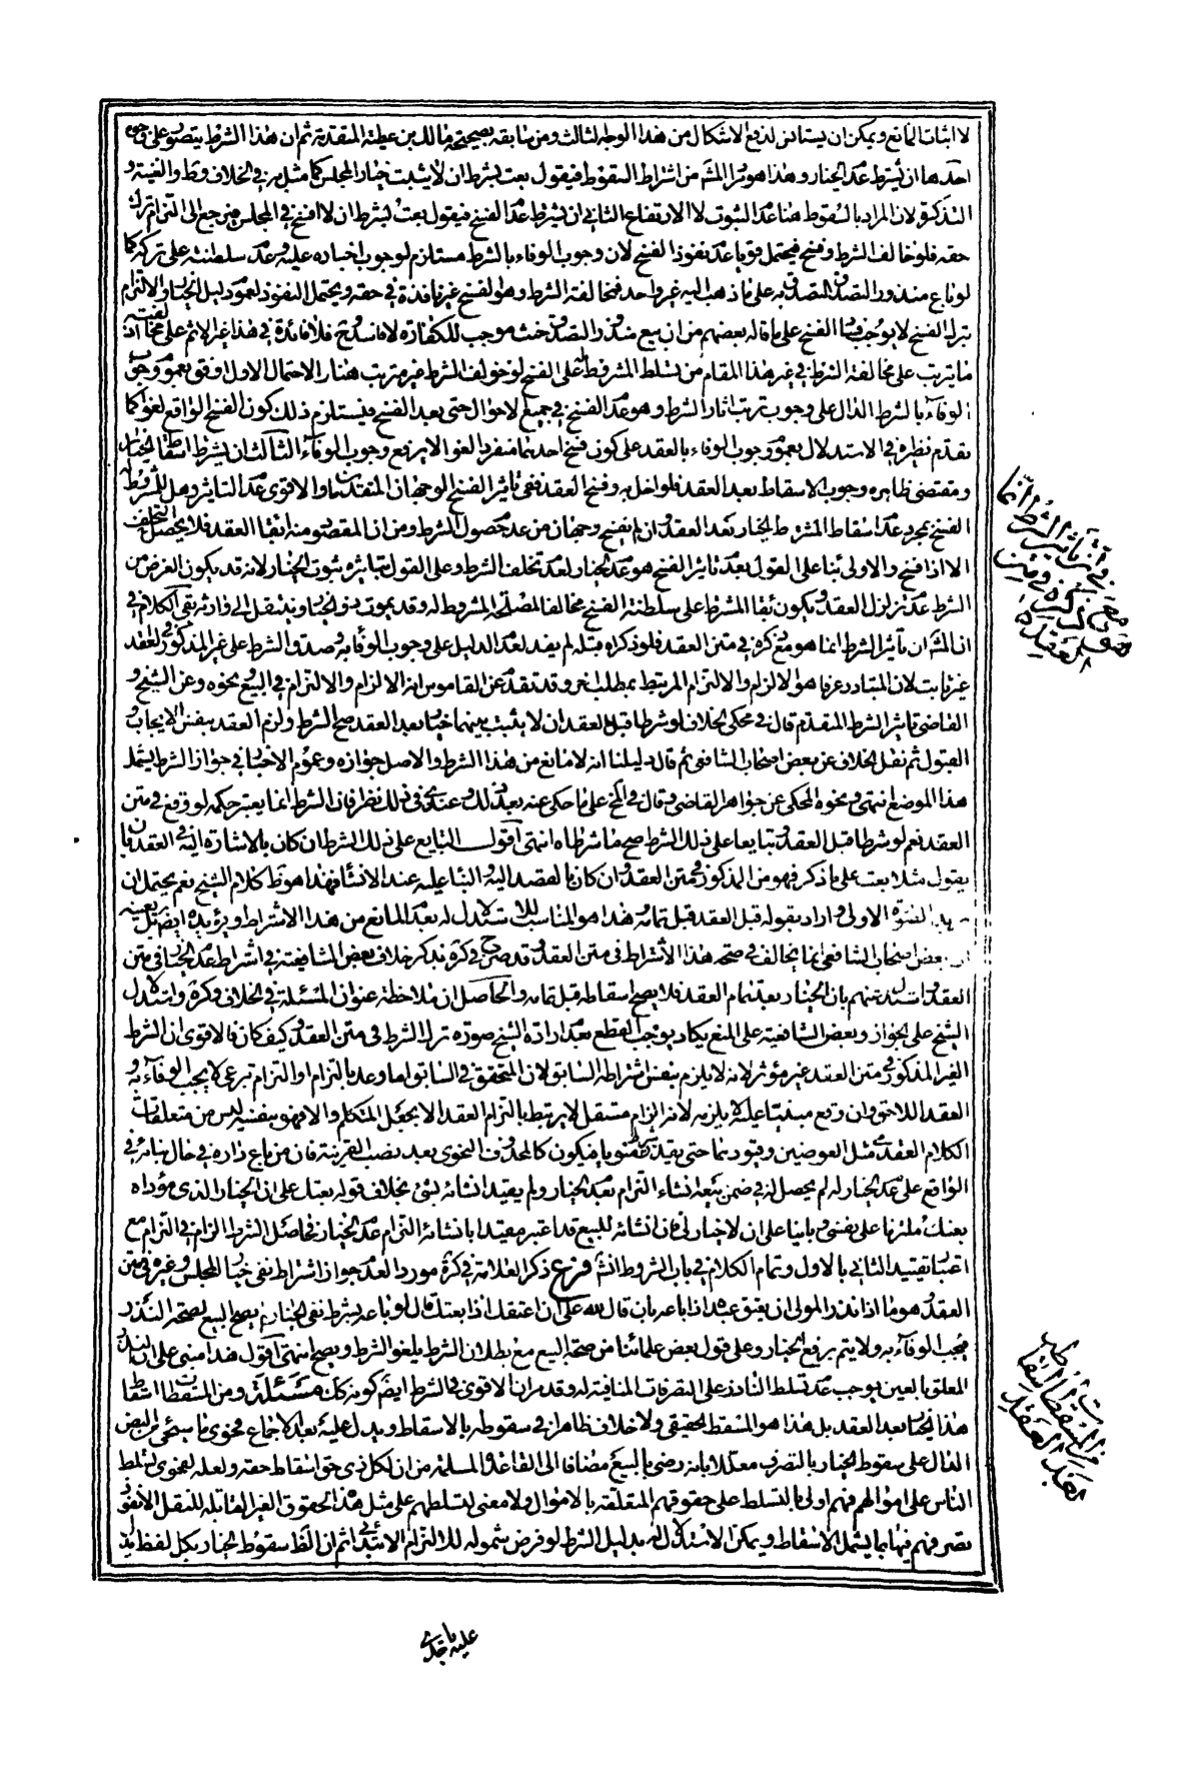 لا اثبات المانع ويمكن ان يستانس لدفع الاشكال من هذا الوجه الثالث ومن سابقه بصحيحة مالك بن عطية المتقدمة ثم ان هذا الشرط يتصور على وجوه
احدها ان يشترط عدم الخيار وهذا هو مراد المش من اشتراط السقوط فيقول بعت بشرط ان لا يثبت خيار المجلس كما مثل به في الخلاف وط والغنية و
التذكرة لان المراد بالسقوط هنا عدم الثبوت لا الارتفاع الثاني ان يشترط عدم الفسخ فيقول بعت بشرط ان لا افسخ في المجلس فيرجع الى التزام ترك
حقه فلو خالف الشرط وفسخ فيحتمل قويا عدم نفوذ الفسخ لان وجوب الوفاء بالشرط مستلزم لوجوب اجباره عليه وعدم سلطنته على تركه كما
لو باع منذور التصدق به على ما ذهب اليه غير واحد فمخالفة الشرط وهو الفسخ غير نافذة في حقه ويحتمل النفوذ لعموم دليل الخيار والالتزام
بترك الفسخ لا يوجب فساد الفسخ على ما قاله بعضهم من ان بيع منذور التصدق حنث موجب للكفارة لا فاسد وح فلا فائدة في هذا غير الاثم على مخالفته اذ
ما يترتب على مخالفة الشرط في غير هذا المقام من تسلط المشروط له على الفسخ لو خولف الشرط غير مترتب هنا والاحتمال الاول اوفق بعموم وجوب
الوفاء بالشرط الدال على وجوب ترتب اثار الشرط وهو عدم الفسخ في جميع الاحوال حتى بعد الفسخ فيستلزم ذلك كون الفسخ الواقع لغوا كما
تقدم نظيره في الاستدلال بعموم وجوب الوفاء بالعقد على كون فسخ احدهما منفردا لغوا لا يرفع وجوب الوفاء الثالث ان يشترط اسقاط الخيار
ومقتضى ظاهره وجوب الاسقاط بعد العقد فلو اخل به وفسخ العقد ففي تاثير الفسخ الوجهان المتقدمان والاقوى عدم التاثير وهل للمشروط له
الفسخ بمجرد عدم اسقاط المشترط الخيار بعد العقد وان لم يفسخ وجهان من عدم حصول الشرط ومن ان المقصود منه ابقاء العقد فلا يحصل التخلف
الا اذا فسخ والاولى بناء على القول بعدم تاثير الفسخ هو عدم الخيار لعدم تخلف الشرط وعلى القول بتاثيره ثبوت الخيار لانه قد يكون الغرض من
الشرط عدم تزلزل العقد ويكون بقاء المشترط على سلطنة الفسخ مخالفا لمصلحة المشروط له وقد يموت ذو الخيار وينتقل الى وارثه بقي الكلام في
ان المش ان تاثير الشرط انما هو مع ذكره في متن العقد فلو ذكراه قبله لم يفد لعدم الدليل على وجوب الوفاء به وصدق الشرط على غير المذكور في العقد
غير ثابت لان المتبادر عرفا هو الالزام والالتزام المرتبط بمطلب اخر وقد تقدم عن القاموس انه الالزام والالتزام في البيع ونحوه وعن الشيخ و
القاضي تاثير الشرط المتقدم قال في محكي الخلاف لو شرطا قبل العقد ان لا يثبت بينهما خيار بعد العقد صح الشرط ولزم العقد بنفس الايجاب و
القبول ثم نقل الخلاف عن بعض اصحاب الشافعي ثم قال دليلنا انه لا مانع من هذا الشرط والاصل جوازه وعموم الاخبار في جواز الشرط يشمل
هذا الموضع انتهى ونحوه المحكي عن جواهر القاضي وقال في لف على ما حكي عنه بعد ذلك وعندي في ذلك نظر فان الشرط انما يعتبر حكمه لو وقع في متن
العقد نعم لو شرطا قبل العقد وتبايعا على ذلك الشرط صح ما شرطاه انتهى اقول التبايع على ذلك الشرط ان كان بالاشارة اليه في العقد بان
يقول مثلا بعت على ما ذكر فهو من المذكور في متن العقد وان كان بالقصد اليه والبناء عليه عند الانشاء فهذا هو ظ كلام الشيخ نعم يحتمل ان
يريد الصورة الاولى واراد بقوله قبل العقد قبل تمامه وهذا هو المناسب للاستدلال له بعدم المانع من هذا الاشتراط ويؤيده ايضا بل يعينه
ان بعض اصحاب الشافعي انما يخالف في صحة هذا الاشتراط في متن العقد وقد صرح في كرة بذكر خلاف بعض الشافعية في اشتراط عدم الخيار في متن
العقد واستدل عنهم بان الخيار بعد تمام العقد فلا يصح اسقاطه قبل تمامه والحاصل ان ملاحظة عنوان المسئلة في الخلاف وكرة واستدلال
الشيخ على الجواز وبعض الشافعية على المنع يكاد يوجب القطع بعدم ارادة الشيخ صورة ترك الشرط في متن العقد وكيف كان فالاقوى ان الشرط
الغير المذكور في متن العقد غير مؤثر لانه لا يلزم بنفس اشتراطه السابق لان المتحقق في السابق اما وعد بالتزام او التزام تبرعي لا يجب الوفاء به و
العقد اللاحق وان وقع مبنيا عليه لا يلزمه لانه الزام مستقل لا يرتبط بالتزام العقد الا بجعل المتكلم والا فهو بنفسه ليس من متعلقات
الكلام العقدي مثل العوضين وقيودهما حتى يقدر شرطا منويا فيكون كالمحذوف النحوي بعد نصب القرينة فان من باع داره في حال بنائه في
الواقع على عدم الخيار له لم يحصل له في ضمن بيعه انشاء التزام بعدم الخيار ولم يقيد انشائه بشئ بخلاف قوله بعتك على ان لا خيار الذي مؤداه
بعتك ملتزما على نفسي وبانيا على ان لا خيار لي فان انشائه للبيع قد اعتبر مقيدا بانشائه التزام عدم الخيار فحاصل الشرط الزام في التزام مع
اعتبار تقييد الثاني بالاول وتمام الكلام في باب الشروط انش فرع ذكر العلامة في كرة موردا لعدم جواز اشتراط نفي خيار المجلس وغيره في متن
العقد وهو ما اذا نذر المولى ان يعتق عبده اذا باعه بان قال لله علي ان اعتقك اذا بعتك قال لو باعه بشرط نفي الخيار لم يصح البيع لصحة النذر
فيجب الوفاء به ولا يتم برفع الخيار وعلى قول بعض علمائنا من صحة البيع مع بطلان الشرط يلغو الشرط ويصح انتهى اقول هذا مبني على ان النذر
المعلق بالعين يوجب عدم تسلط الناذر على التصرفات المنافية له وقد مر ان الاقوى في الشرط ايضا كونه كك مسئلة ومن المسقطات اسقاط
هذا الخيار بعد العقد بل هذا هو المسقط الحقيقي ولا خلاف ظاهرا في سقوطه بالاسقاط ويدل عليه بعد الاجماع فحوى ما سيجئ من النص
الدال على سقوط الخيار بالتصرف معللا بانه رضي بالبيع مضافا الى القاعدة المسلمة من ان لكل ذي حق اسقاط حقه ولعله لفحوى تسلط
الناس على اموالهم فهم اولى بالتسلط على حقوقهم المتعلقة بالاموال ولا معنى لتسلطهم على مثل هذه الحقوق الغير القابلة للنقل الا نفوذ
تصرفهم فيها بما يشمل الاسقاط ويمكن الاستدلال له بدليل الشرط لو فرض شموله للالتزام الابتدائي ثم ان الظ سقوط الخيار بكل لفظ يدل
في ان تاثير الشرط انما
هو مع ذكره في متن
العقد
من المسقطات اسقاط
بعد العقد
عليه باحدى